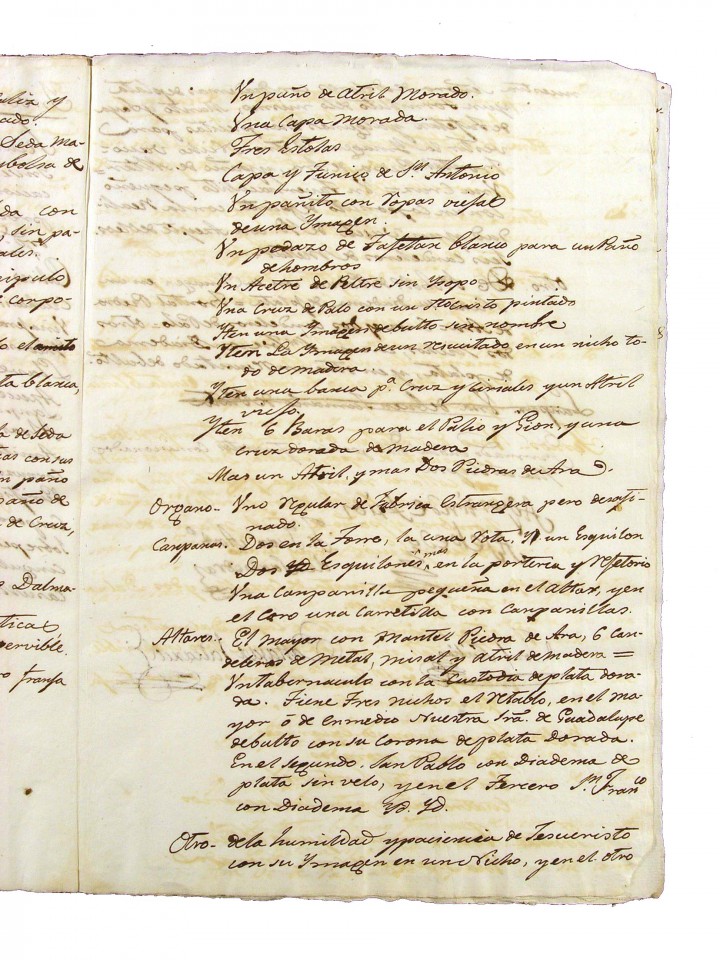 aliz y
ado.
Seda ma-
bolsa de
da con
sin pa-
ales.
nipulo
corpo-
lo el amito
ta blanca,
la de Seda
tas con sus
n paño
paño de
de Cruz,
Dalma-
tica
servible.
franja
Vn paño de Atril Morado.
Vna Capa Morada.
Tres Estolas
Capa y Tunico de Sn Antonio
Vn pañito con ropas viejas
de una Ymagen.
Vn pedazo de Tafetan blanco para un Paño
de hombros
Vn Acetre de Peltre sin Ysopo
Vna Cruz de Palo con un StoCristo pintado
Yten una Ymagen de bulto sin nombre
Yten La Ymagen de un resucitado en un nicho to-
do de madera.
Yten una banca pa. Cruz y Ciriales y un Atril
viejo.
Yten 6 Baras para el Palio y Gion, y una
Cruz dorada de madera
Mas un Atril, y mas Dos Piedras de Ara.
Organo- Vno regular de Fabrica Estrangera pero desafi-
nado.
Canpanas. Dos en la Torre, la una rota, Yt un Esquilon
Dos Yd Esquilones mas en la porteria y refetorio
Vna Canpanilla pequeña en el Altar, y en
el Coro una Carretilla con Canpanillas.
Altares. El mayor con Mantel Piedra de Ara, 6 Can-
deleros de Metal, misal y Atril de madera =
Vn tabernaculo con la Custodia de plata dora-
da. Tiene Tres nichos el retablo, en el ma-
yor ó de enmedio Nuestra Sra. de Guadalupe
de bulto con su Corona de plata Dorada.
En el segundo. San Pablo con Diadema de
plata sin velo, y en el Tercero Sn. Franco
con Diadema Yd. Yd.
Otro- de la humildad y paciencia de Jesucristo
con su Ymagen en un Nicho, y en el otro